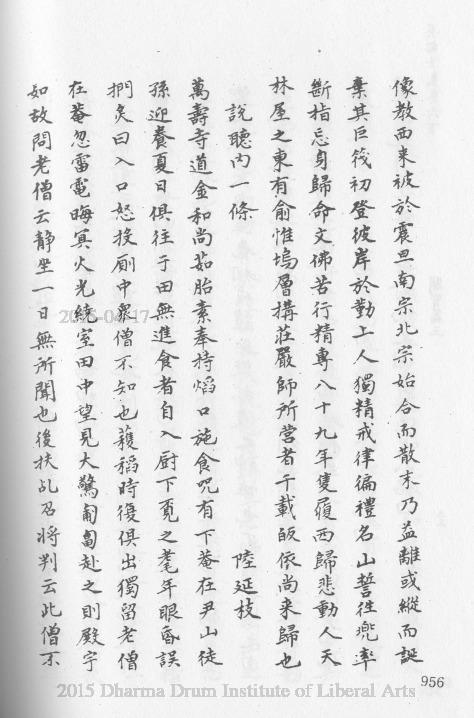 像教西来被於震旦南宗北宗始合而散末乃益離或縱而誕
棄其巨筏初登彼岸於勤上人獨精戒律徧禮名山誓徃兜率
斷指忘身歸命文佛苦行精專八十九年隻履西歸悲動人天
林屋之東有俞惟塢層搆莊嚴師所營者千載皈依尚来歸也
說聽内一條
陸延枝
萬壽寺道金和尚茹胎素奉持熖口施食咒有下菴在尹山徒
孫迎養夏日俱往于田無進食者自入厨下覔之耄年眼昏誤
捫灸曰入口怒投厠中衆僧不知也穫稻時復俱出獨留老僧
在菴忽雷電晦冥火光繞室田中望見大驚匍匐赴之則殿宇
如故問老僧云静坐一日無所聞也後扶乩召將判云此僧不
956
2015-04-17
2015 Dharma Drum Institute of Liberal Arts